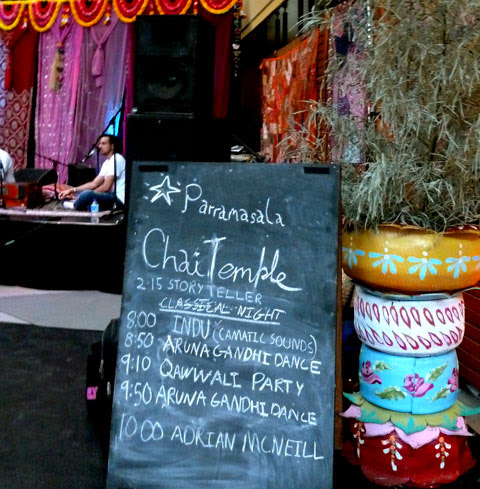 Parramasala
Chai Temple
2.15 STORYTELLER
CLASSICAL NIGHT
8:00 INDU (CAMATIC SOUNDS)
8:50 ARUNA GANDHI DANCE
9:10 QAWWALI PARTY
9:50 ARUNA GANDHI DANCE
10:00 ADRIAN MCNEILL